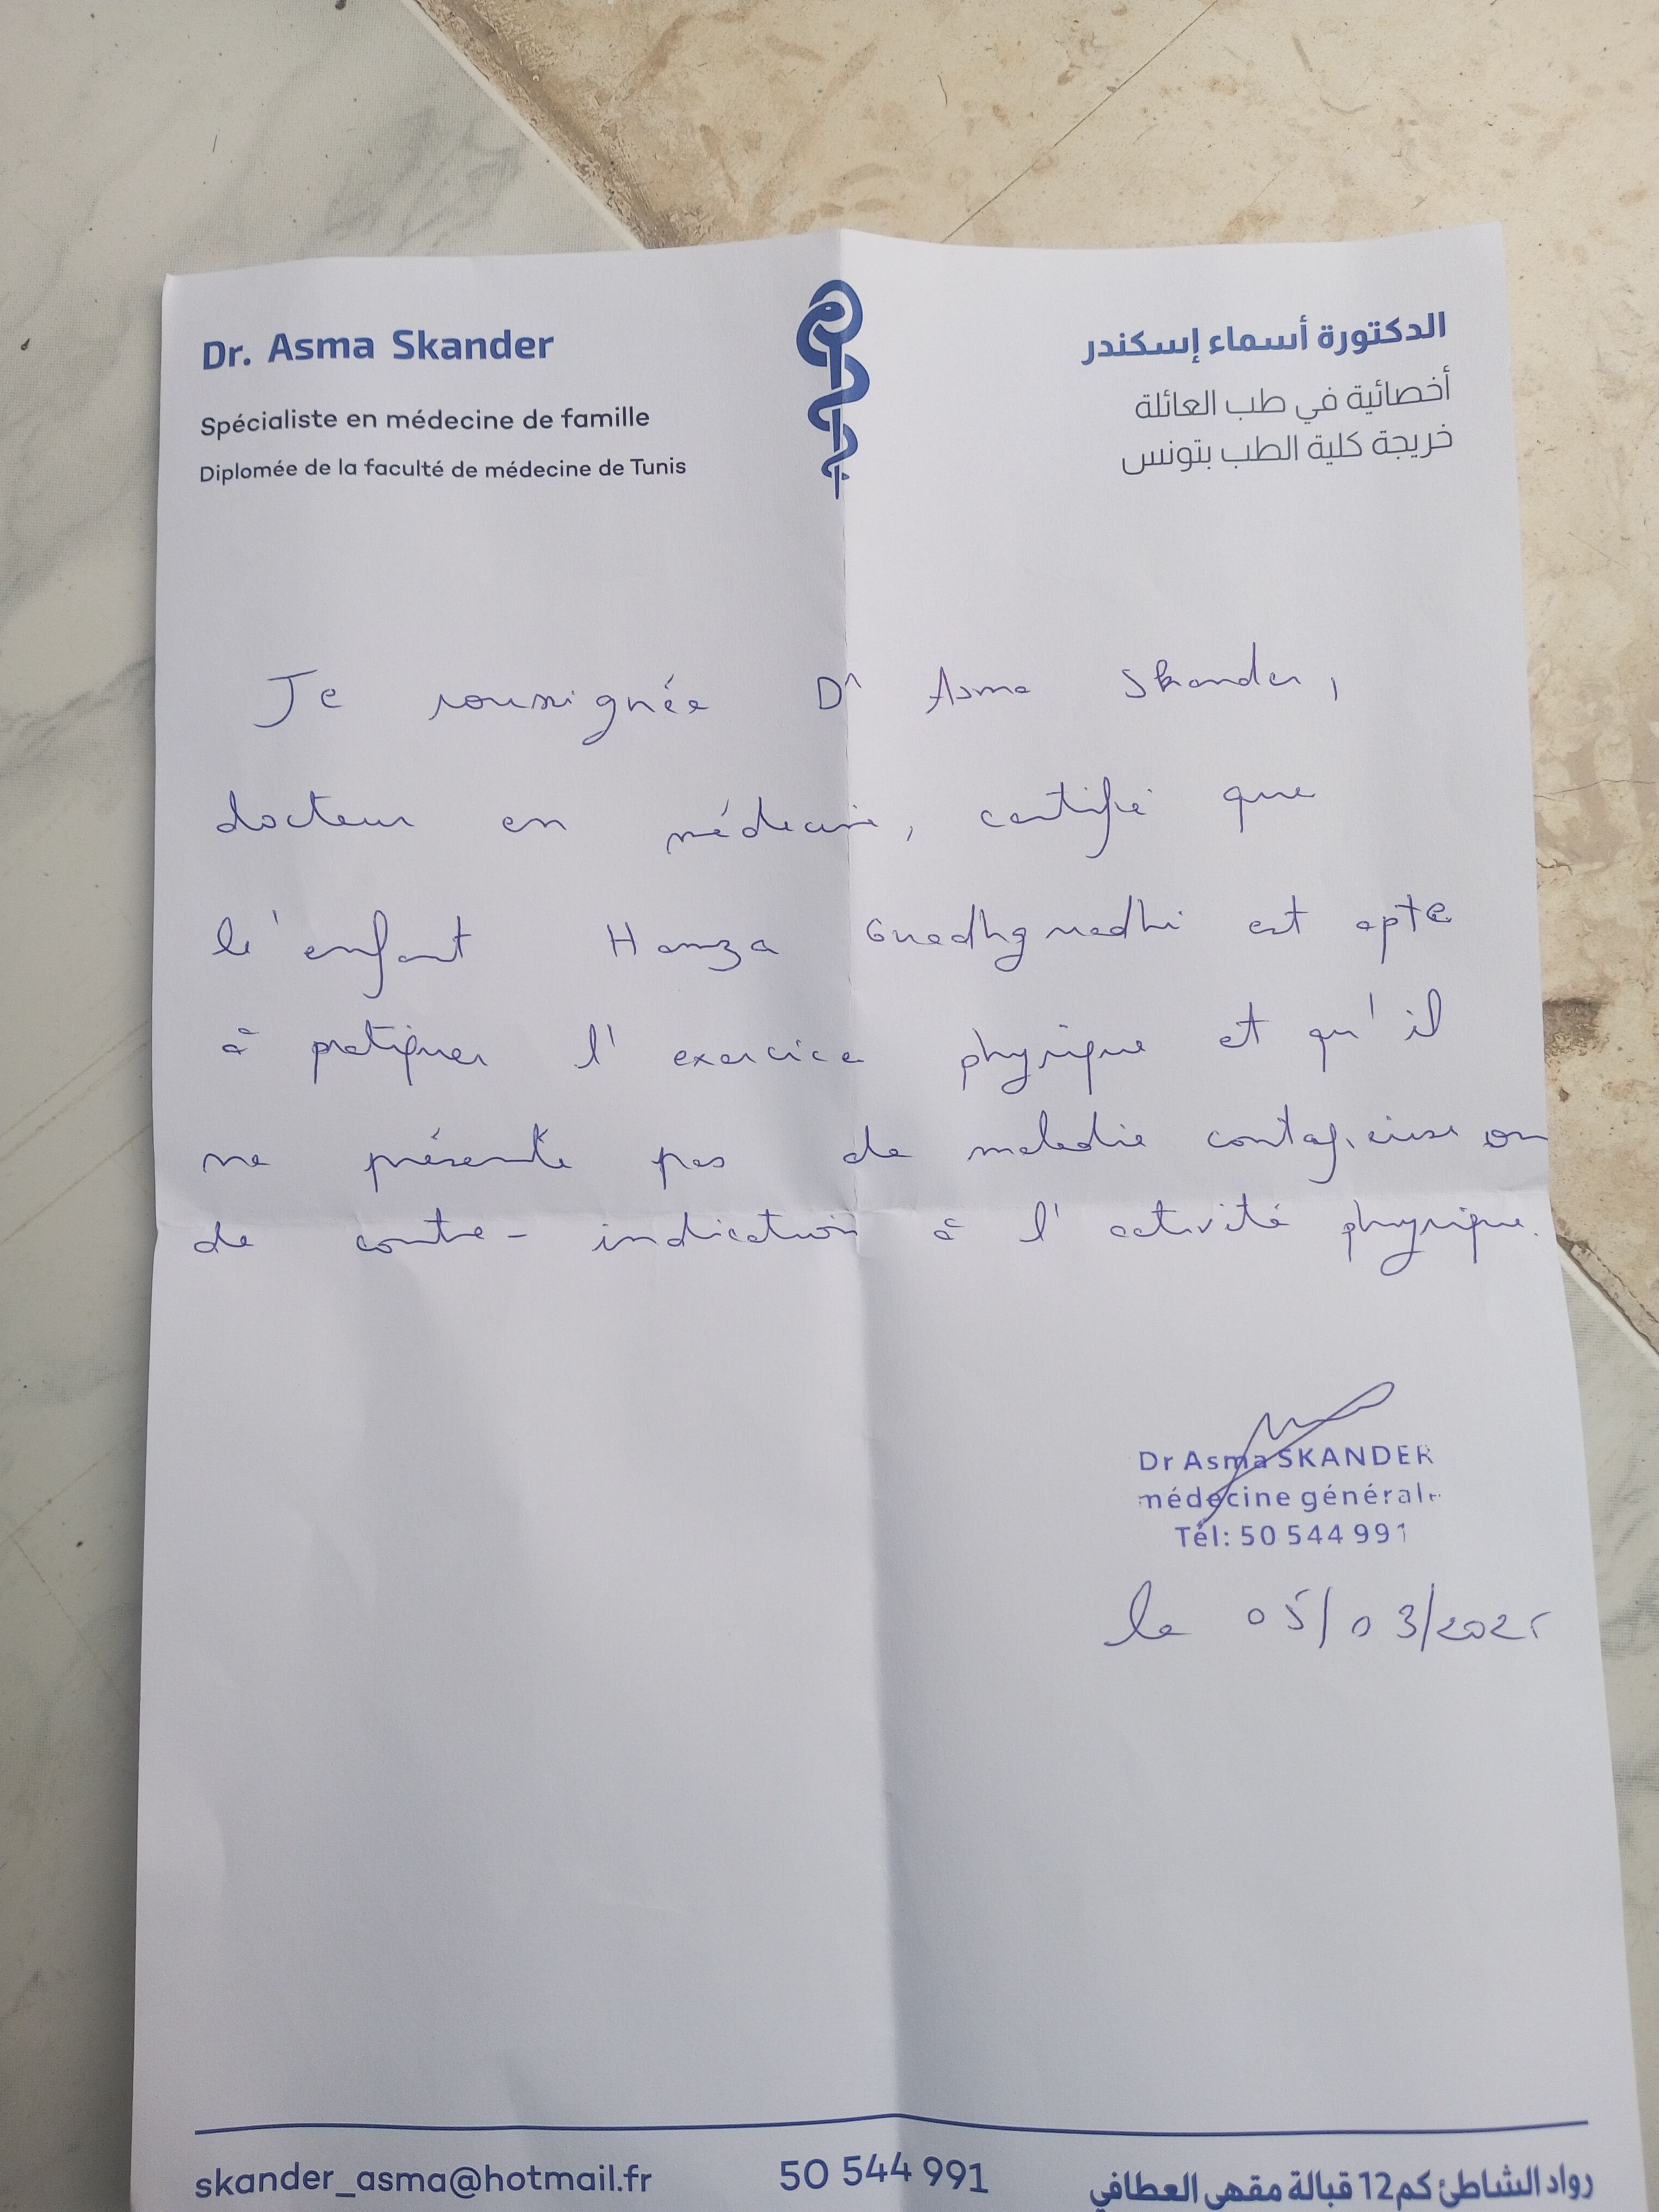 Dr. Asma Skander
Spécialiste en médecine de famille
Diplomée de la faculté de médecine de Tunis
الدكتورة أسماء إسكندر
أخصائية في طب العائلة
خريجة كلية الطب بتونس
Je soussignée Dr Asma Skander,
docteur en médecine, certifie que
l'enfant Hamza est apte
à pratiquer l'exercice physique et qu'il
ne présente pas de maladie contagieuse ou
de contre-indication à l'activité physique.
Dr Asma SKANDER
médecine générale
Tél: 50 544 991
le 05/03/2025
skander_asma@hotmail.fr
50 544 991
رواد الشاطئ كم12 قبالة مقهى العطافي